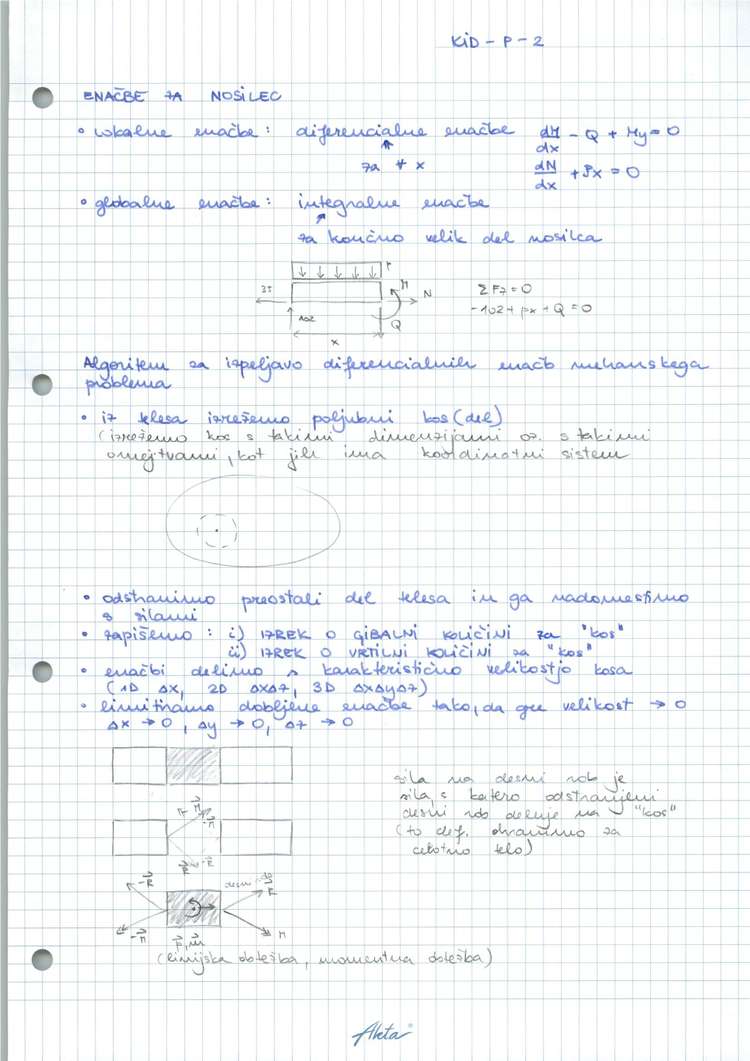 KiD - P - 2
ENAČBE ZA NOSILEC
• lokalne enačbe : diferencialne enačbe dM/dx - Q + My = 0
za ∀ x dN/dx + Px = 0
• globalne enačbe : integralne enačbe
za končno velik del nosilca
P
35 M N ΣFz = 0
102 Q -102 + px + Q = 0
x
Algoritem za izpeljavo diferencialnih enačb mehanskega
problema
• iz telesa izrežemo poljubni kos (del)
(izrežemo kos s takimi dimenzijami oz. s takimi
omejitvami, kot jih ima koordinatni sistem
• odstranimo preostali del telesa in ga nadomestimo
s silami
• zapišemo : i) IZREK O GIBALNI KOLIČINI za "kos"
ii) IZREK O VRTILNI KOLIČINI za "kos"
• enačbi delimo s karakteristično velikostjo kosa
(1D Δx, 2D ΔxΔz, 3D ΔxΔyΔz)
• limitiramo dobljene enačbe tako, da gre velikost → 0
Δx → 0, Δy → 0, Δz → 0
sila na desni rob je
sila, s katero odstranjeni
desni rob deluje na "kos"
(to def. ohranimo za
celotno telo)
(linijska obtežba, momentna obtežba)
Aheta